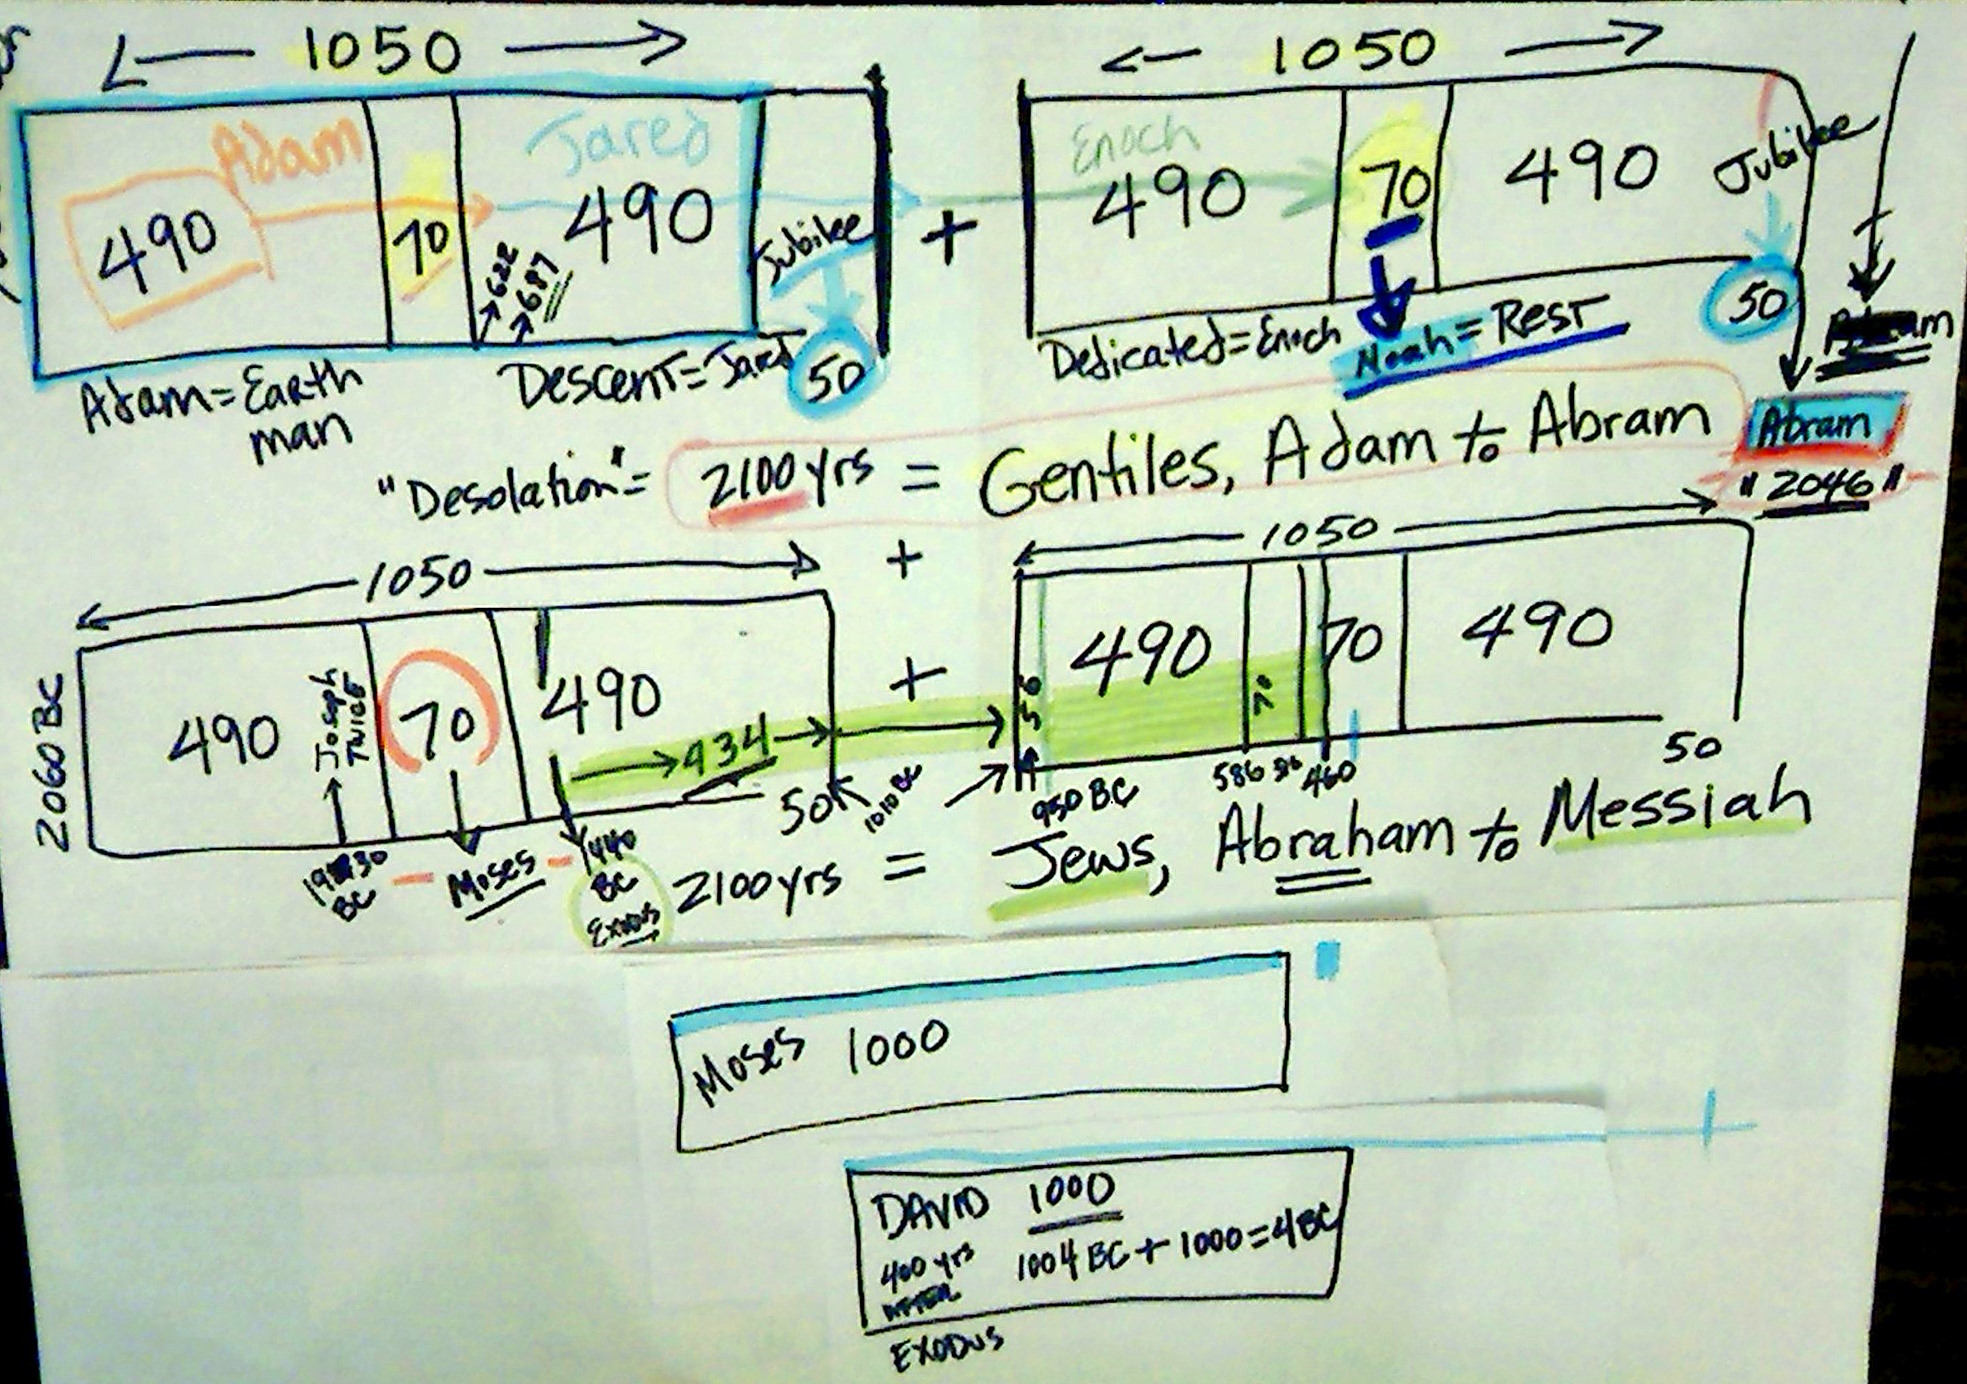 1050
1050
Adam
Jared
Enoch
490
70
490
Jubilee
+
490
70
490
Jubilee
622
687
50
50
Adam = Earth
man
Descent = Jared
Dedicated = Enoch
Noah = Rest
Abram
"Desolation" = 2100 yrs = Gentiles, Adam to Abram
"2046"
1050
+
1050
2060 BC
490
Joseph
TWICE
70
490
434
+
490
70
70
490
50
1010 BC
950 BC
586
460
50
BC
Moses
1440
BC
Exodus
2100 yrs = Jews, Abraham to Messiah
Moses 1000
DAVID 1000
400 yrs
AFTER
1004 BC + 1000 = 4 BC
EXODUS